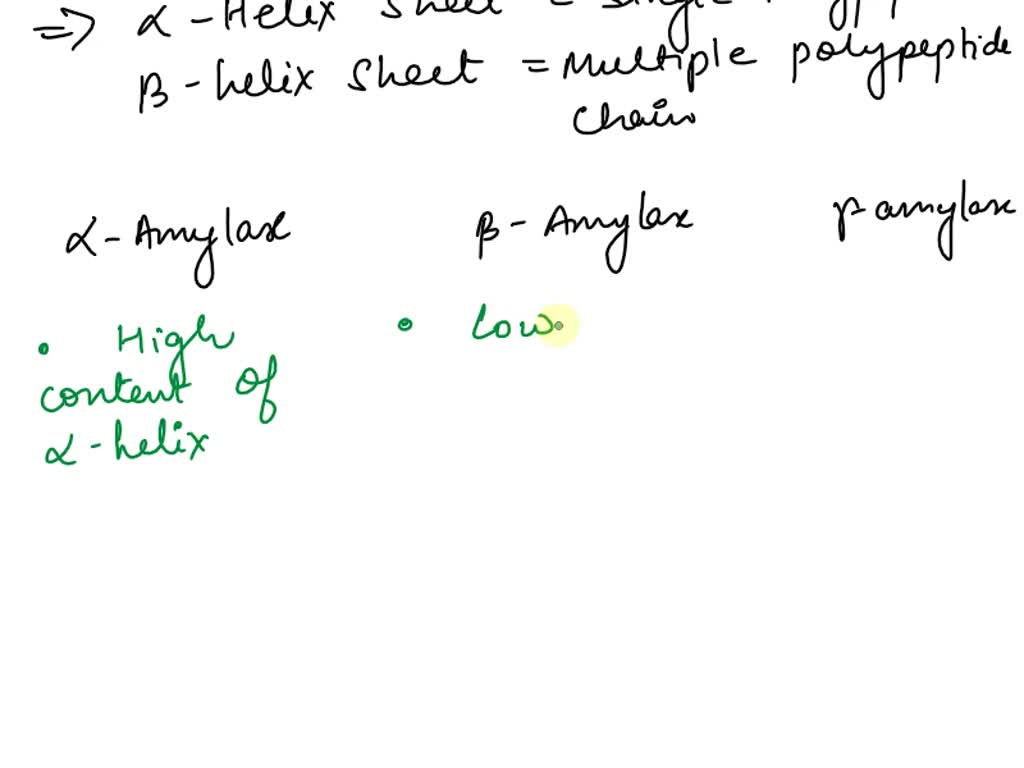 => α-Helix Sheet = Single
β-helix sheet = Multiple polypeptide
chain
α-Amylase β-Amylase γ amylase
• High • Low
content of
α-helix